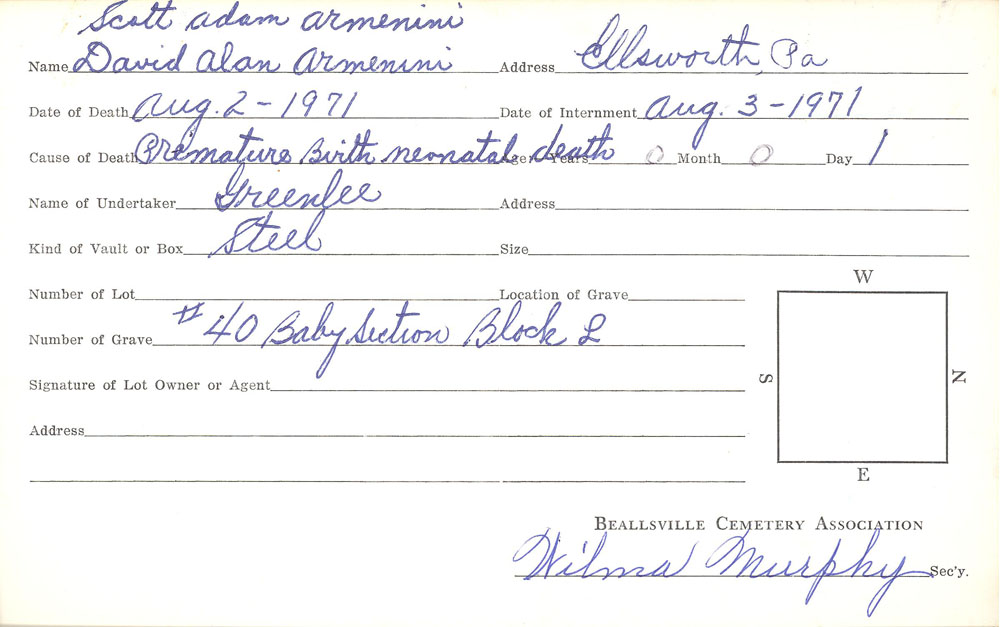 Scott Adam Armenini
Name David Alan Armenini Address Ellsworth, Pa
Date of Death Aug. 2 - 1971 Date of Internment Aug. 3 - 1971
Cause of Death Premature Birth neonatal death Age: Years 0 Month 0 Day 1
Name of Undertaker Greenlee Address
Kind of Vault or Box Steel Size
Number of Lot Location of Grave
Number of Grave #40 Baby Section Block L
Signature of Lot Owner or Agent
Address
W
S N
E
BEALLSVILLE CEMETERY ASSOCIATION
Wilma Murphy Sec'y.